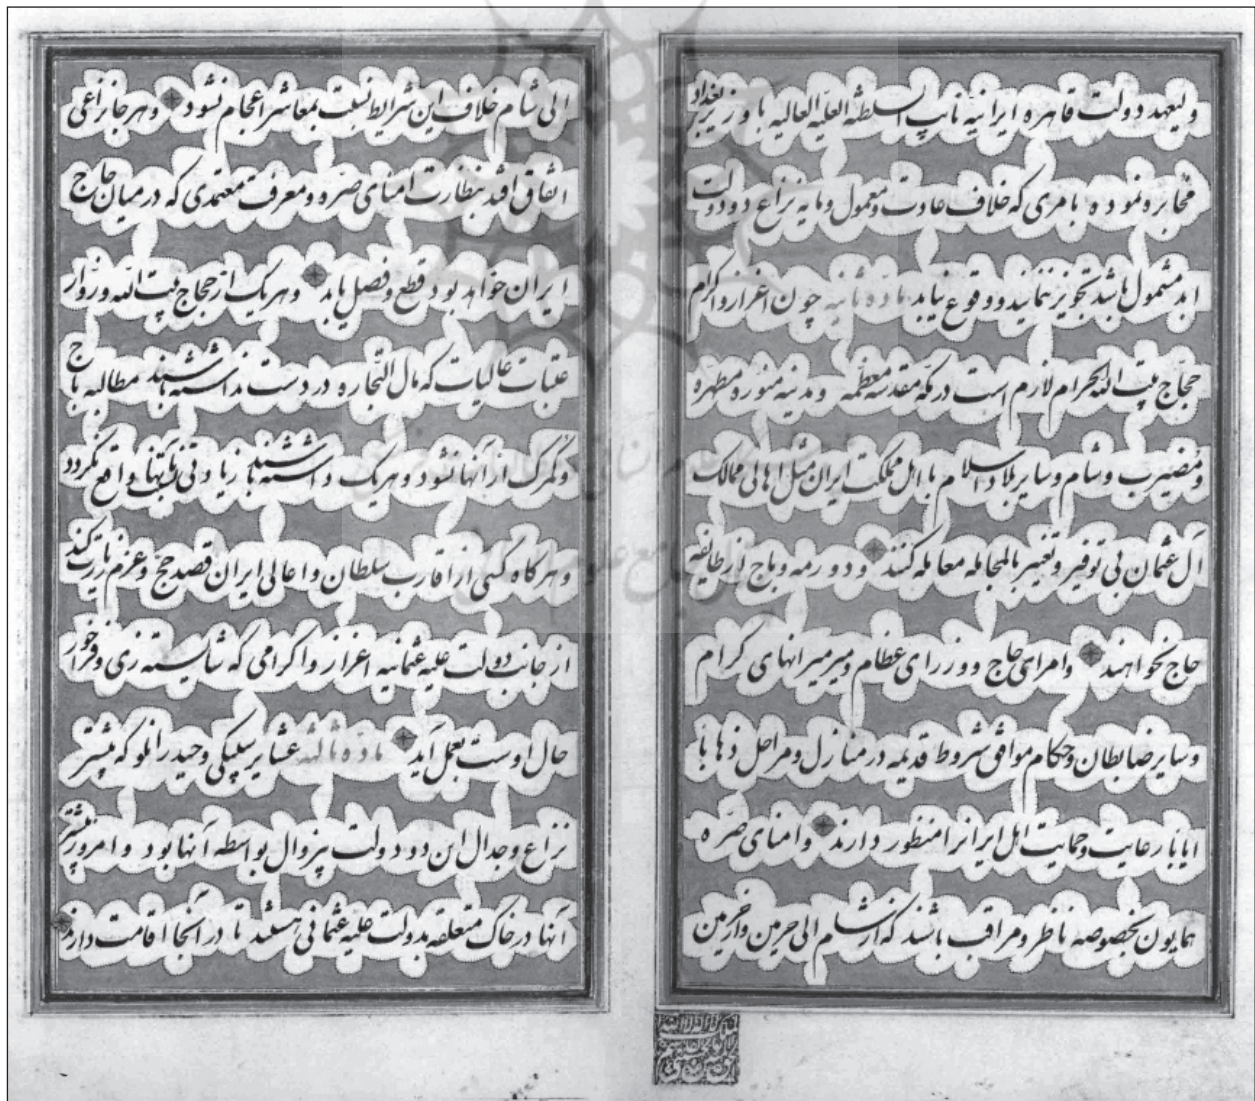 ولیعهد دولت قاهره ایرانیه نایب السلطنه العلیه العالیه با وزیر بغداد
مخابره نموده بامری که خلاف عادت و معمول و مایه نزاع دو دولت
ابد مشمول باشد تجویز ننمایند و وقوع نیابد ماده ثانیه چون اعزاز و اکرام
حجاج بیت الله الحرام لازم است در مکه مقدسه معظمه و مدینه منوره مطهره
و شام و سایر بلاد اسلام با اهل مملکت ایران مثل اهالی ممالک
آل عثمان بی توفیر و تغییر بالمجامله معامله کنند و دورمه و باج از طایفه
حاج نخواهند و امرای حاج و وزرای عظام و میرمیرانهای کرام
و سایر ضابطان و حکام موافق شروط قدیمه در منازل و مراحل ذهابا
ایابا رعایت و حمایت اهل ایرانرا منظور دارند و امنای صره
همایون بخصوصه ناظر و مراقب باشند که از شام الی حرمین و از حرمین
الی شام خلاف این شرایط نسبت بمعاشر اعجام نشود و هر جا نزاعی
اتفاق افتد بنظارت امنای صره و معرفت معتمدی که در میان حاج
ایران خواهد بود قطع و فصل یابد و هر یک از حجاج بیت الله و زوار
عتبات عالیات که مال التجاره در دست نداشته باشند مطالبه باج
و کمرک از آنها نشود و هر یک داشته باشند زیادتی بآنها واقع نکردد
و هر کاه کسی از اقارب سلطان و اعالی ایران قصد حج و عزم زیارت کند
از جانب دولت علیه عثمانیه اعزاز و اکرامی که شایسته زی و فراخور
حال اوست بعمل آید ماده ثالثه عشایر سیپکی و حیدرانلو که پیشتر
نزاع و جدال این دو دولت بیزوال بواسطه آنها بود و امروز بیشتر
آنها در خاک متعلقه بدولت علیه عثمانی هستند تا در آنجا اقامت دارند